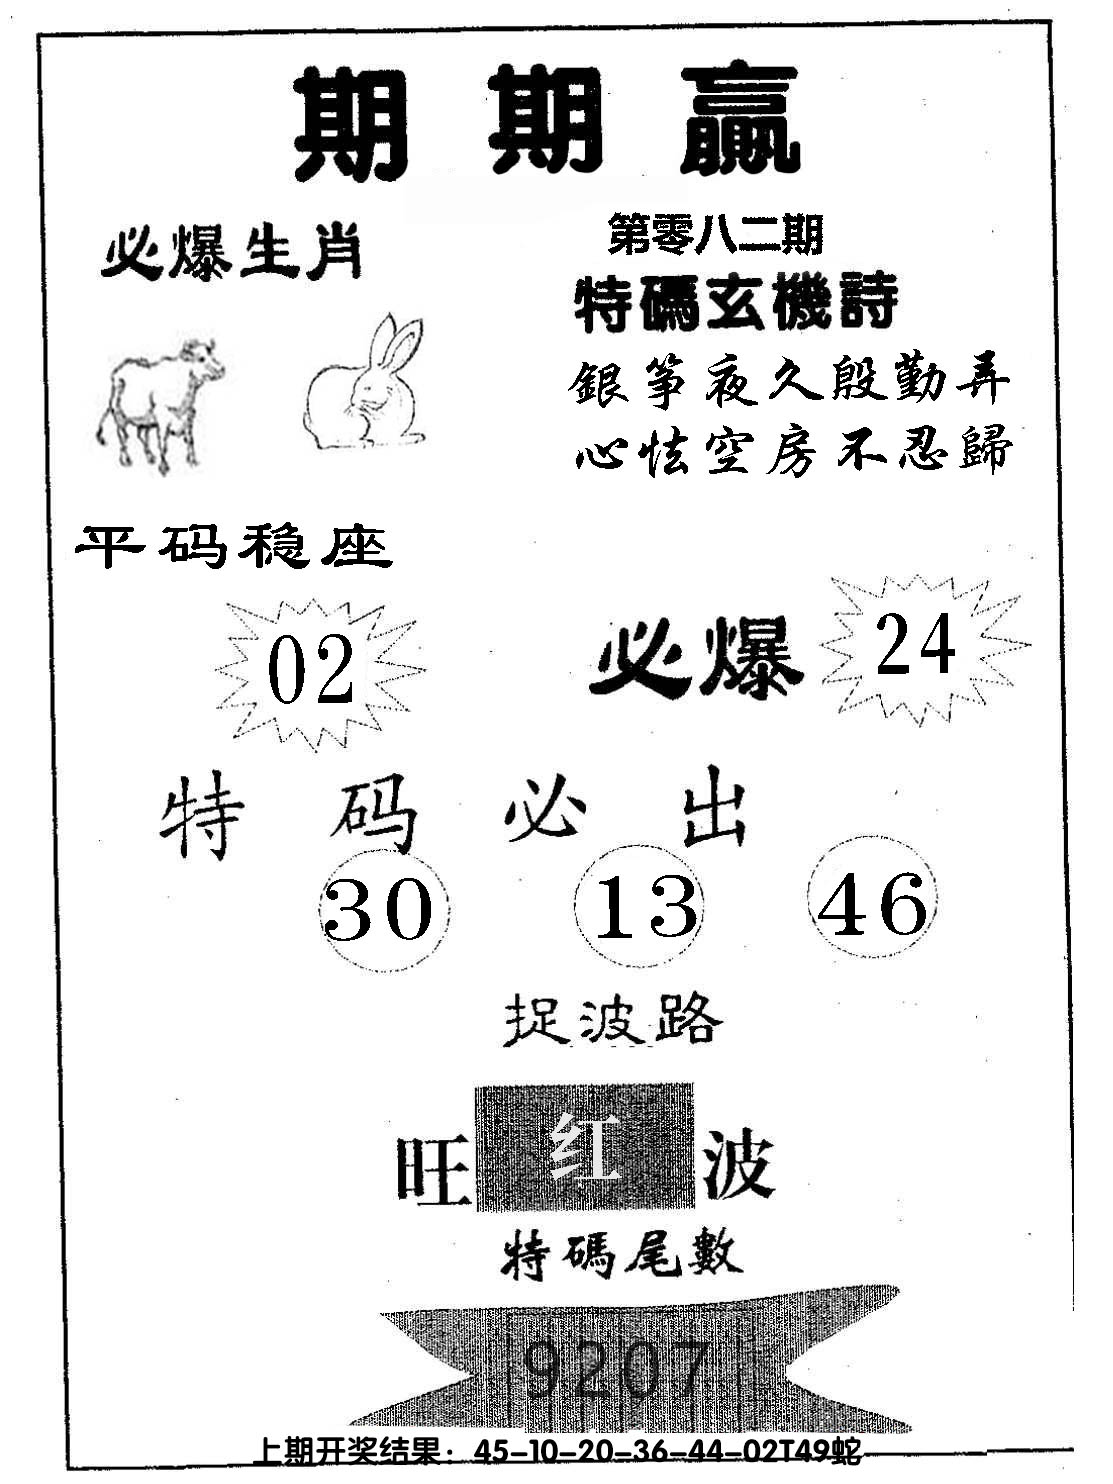 期期赢
必爆生肖
第零八二期
特碼玄機詩
銀筝夜久殷勤弄
心怯空房不忍歸
平码稳座
02
必爆 24
特码必出
30 13 46
捉波路
旺 红 波
特碼尾數
9207
上期开奖结果：45-10-20-36-44-02T49蛇